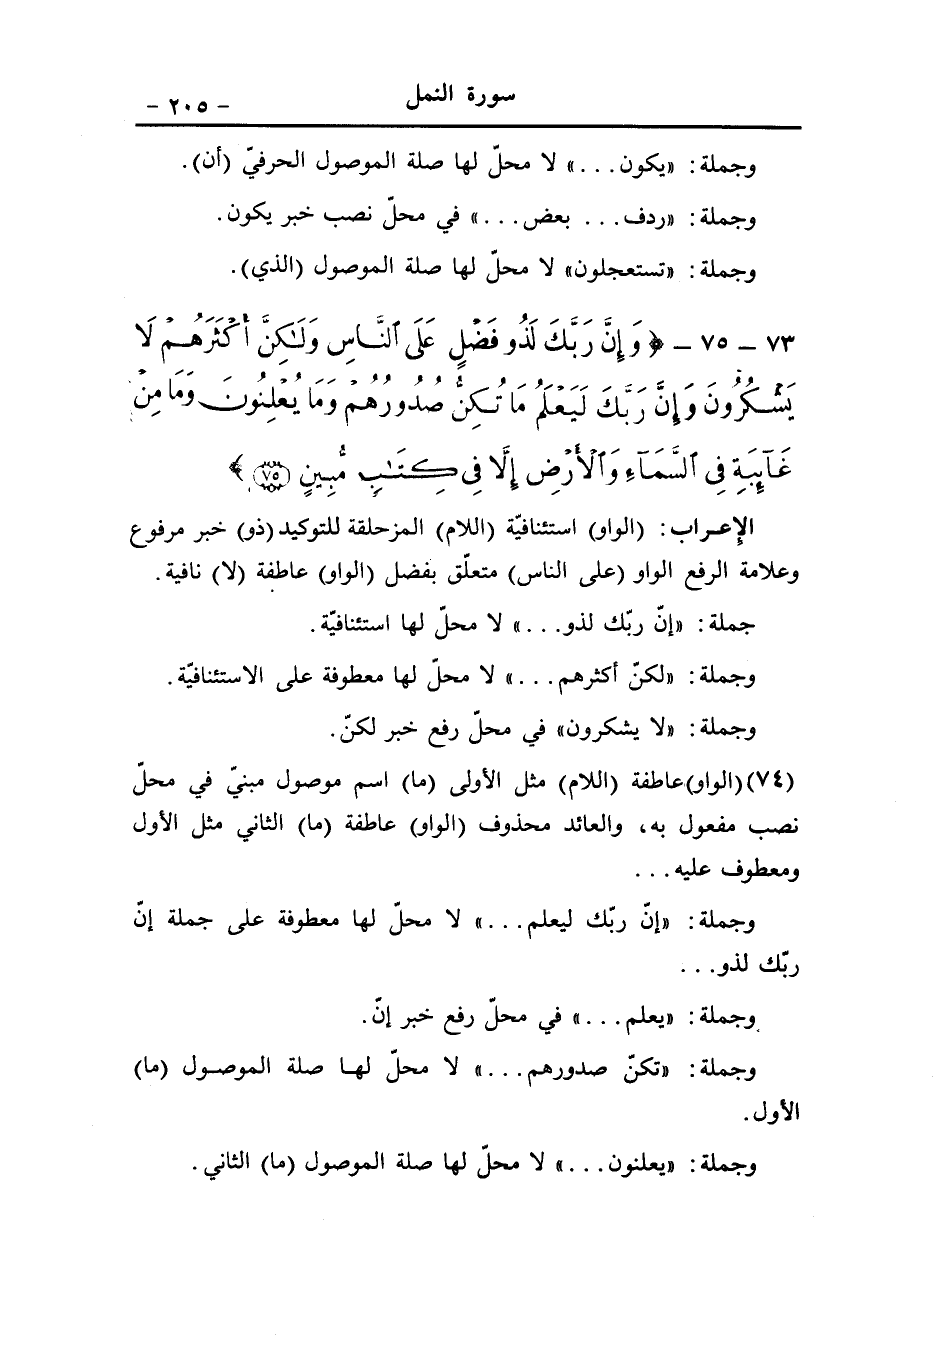 سورة النمل
- ٢٠٥ -
وجملة: «يكون...» لا محلّ لها صلة الموصول الحرفيّ (أن).
وجملة: «ردف... بعض...» في محلّ نصب خبر يكون.
وجملة: «تستعجلون» لا محلّ لها صلة الموصول (الذي).
٧٣ - ٧٥ - ﴿ وَإِنَّ رَبَّكَ لَذُو فَضْلٍ عَلَى ٱلنَّاسِ وَلَٰكِنَّ أَكْثَرَهُمْ لَا
يَشْكُرُونَ وَإِنَّ رَبَّكَ لَيَعْلَمُ مَا تُكِنُّ صُدُورُهُمْ وَمَا يُعْلِنُونَ وَمَا مِنْ
غَآئِبَةٍ فِى ٱلسَّمَآءِ وَٱلْأَرْضِ إِلَّا فِى كِتَٰبٍ مُّبِينٍ ٧٥ ﴾
الإعراب: (الواو) استئنافيّة (اللام) المزحلقة للتوكيد (ذو) خبر مرفوع
وعلامة الرفع الواو (على الناس) متعلّق بفضل (الواو) عاطفة (لا) نافية.
جملة: «إنّ ربّك لذو...» لا محلّ لها استئنافيّة.
وجملة: «لكنّ أكثرهم...» لا محلّ لها معطوفة على الاستئنافيّة.
وجملة: «لا يشكرون» في محلّ رفع خبر لكنّ.
(٧٤) (الواو) عاطفة (اللام) مثل الأولى (ما) اسم موصول مبنيّ في محلّ
نصب مفعول به، والعائد محذوف (الواو) عاطفة (ما) الثاني مثل الأول
ومعطوف عليه...
وجملة: «إنّ ربّك ليعلم...» لا محلّ لها معطوفة على جملة إنّ
ربّك لذو...
وجملة: «يعلم...» في محلّ رفع خبر إنّ.
وجملة: «تكنّ صدورهم...» لا محلّ لها صلة الموصول (ما)
الأول.
وجملة: «يعلنون...» لا محلّ لها صلة الموصول (ما) الثاني.